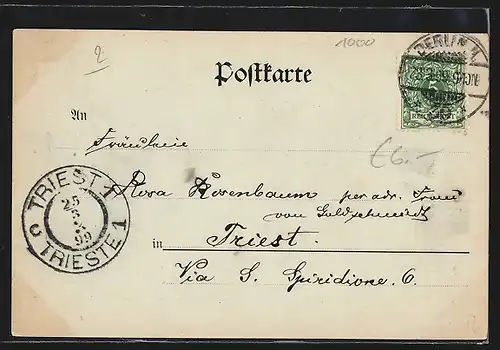 2
1000
BERLIN
Postkarte
REICHSPOST
An
Fräulein
€6.-
Rosa Rosenbaum per adr. Frau
von Goldschmidt
in Triest.
Via S. Spiridione 6.
TRIEST 1
25
3
99
C TRIESTE 1